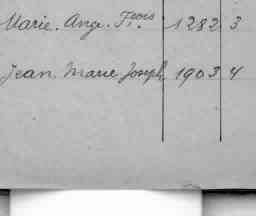 Marie. Ange. Fçois. 1282 3
Jean Marie Joseph 1903 4